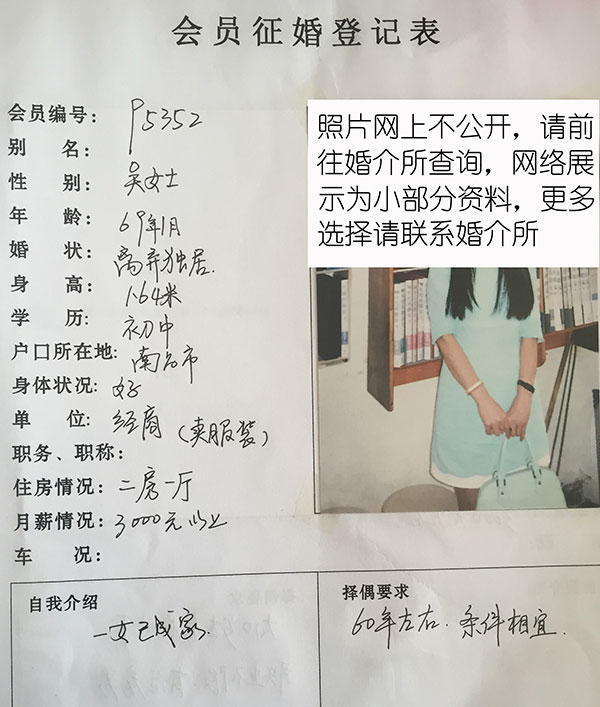 会员征婚登记表
会员编号: P5352
别 名:
性 别: 吴女士
年 龄: 69年1月
婚 状: 离异独居.
身 高: 1.64米
学 历: 初中
户口所在地: 南昌市
身体状况: 好
单 位: 经商(卖服装)
职务、职称:
住房情况: 二房一厅
月薪情况: 3000元以上
车 况:
照片网上不公开，请前
往婚介所查询，网络展
示为小部分资料，更多
选择请联系婚介所
自我介绍
一女已成家.
择偶要求
60年左右. 条件相宜.